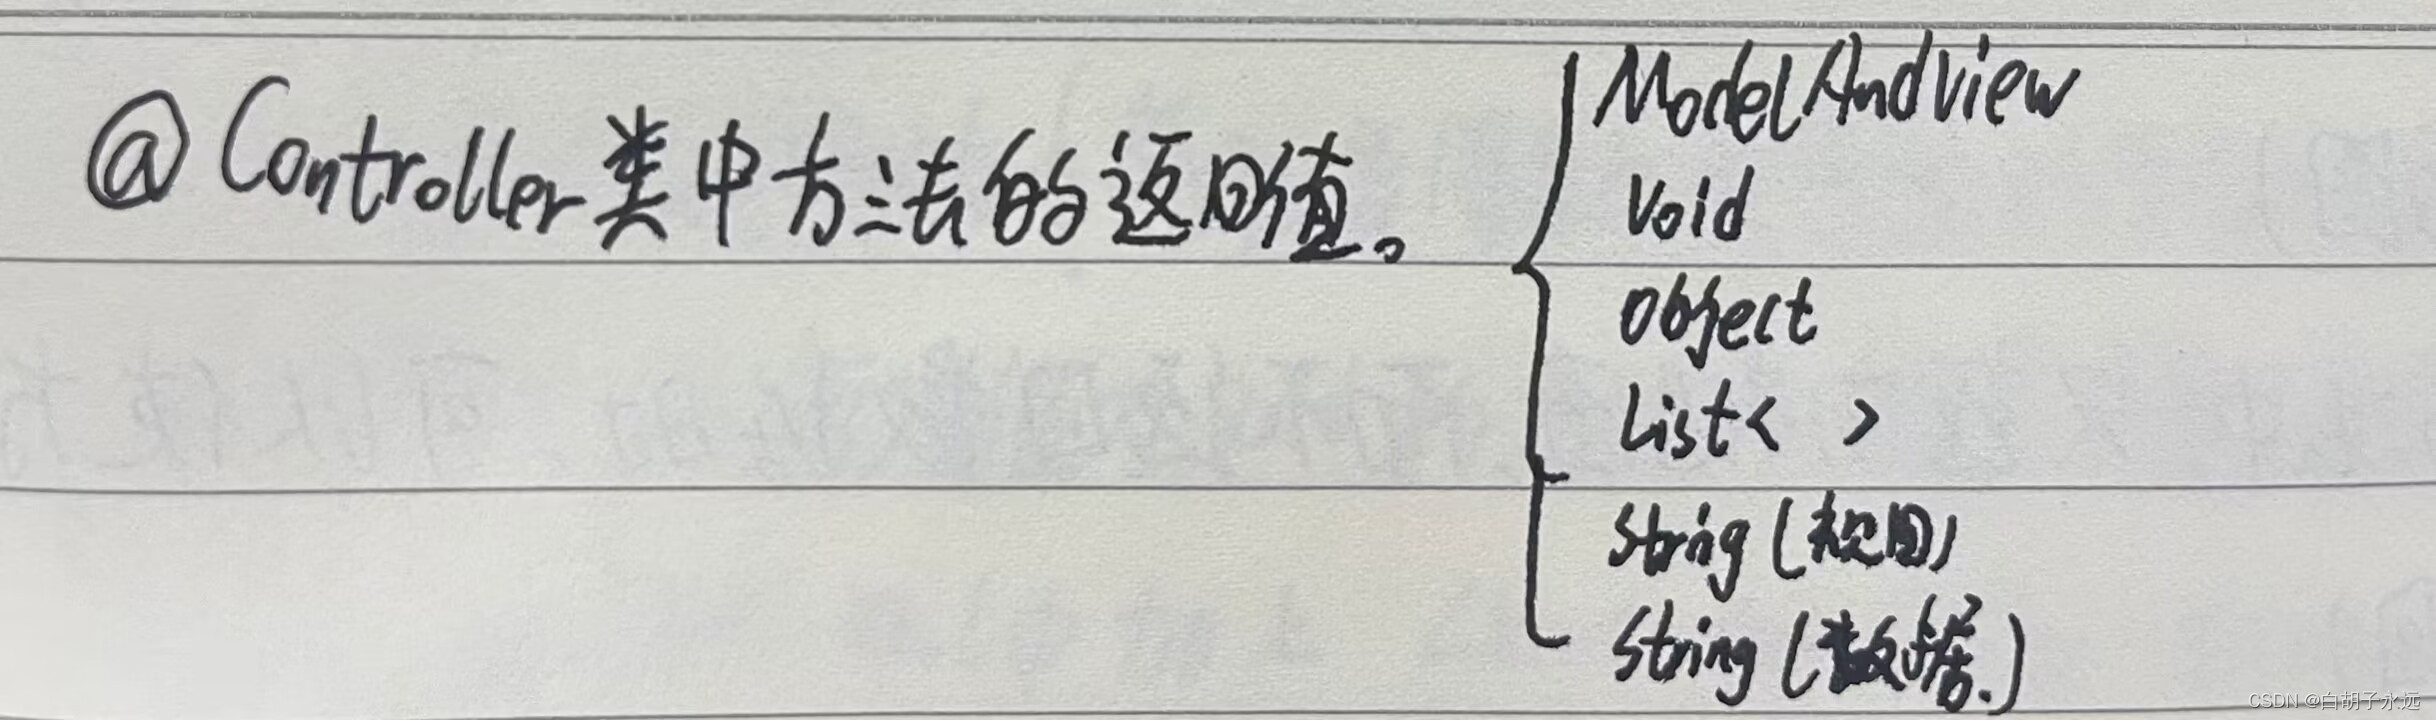 @Controller类中方法的返回值。
ModelAndView
Void
Object
List< >
String (视图)
String (数据.)
CSDN @白胡子永远